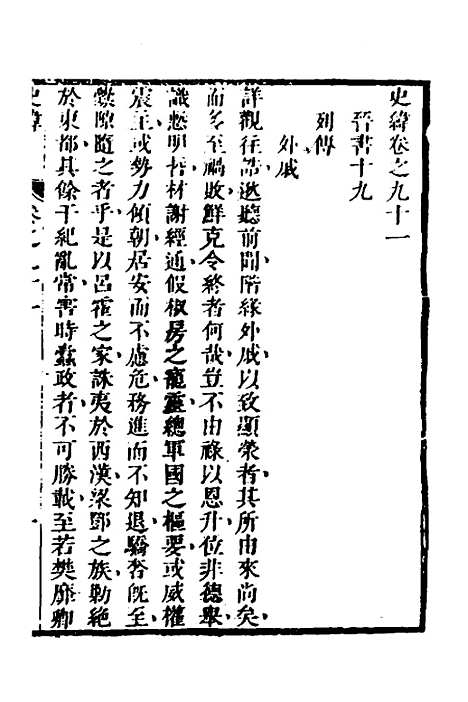 史緯卷之九十一
晉書十九
列傳
外戚
詳觀往誥逖聽前聞階緣外戚以致顯榮者其所由來尚矣
而多至禍敗鮮克令終者何哉豈不由祿以恩升位非德舉
識慙明悊材謝經通假椒房之寵靈總軍國之樞要或威權
震主或勢力傾朝居安而不慮危務進而不知退驕奢旣至
釁隙隨之者乎是以呂霍之家誅夷於西漢梁鄧之族勦絶
於東都其餘干紀亂常害時蠹政者不可勝載至若樊靡卿
史緯 卷之九十一 一